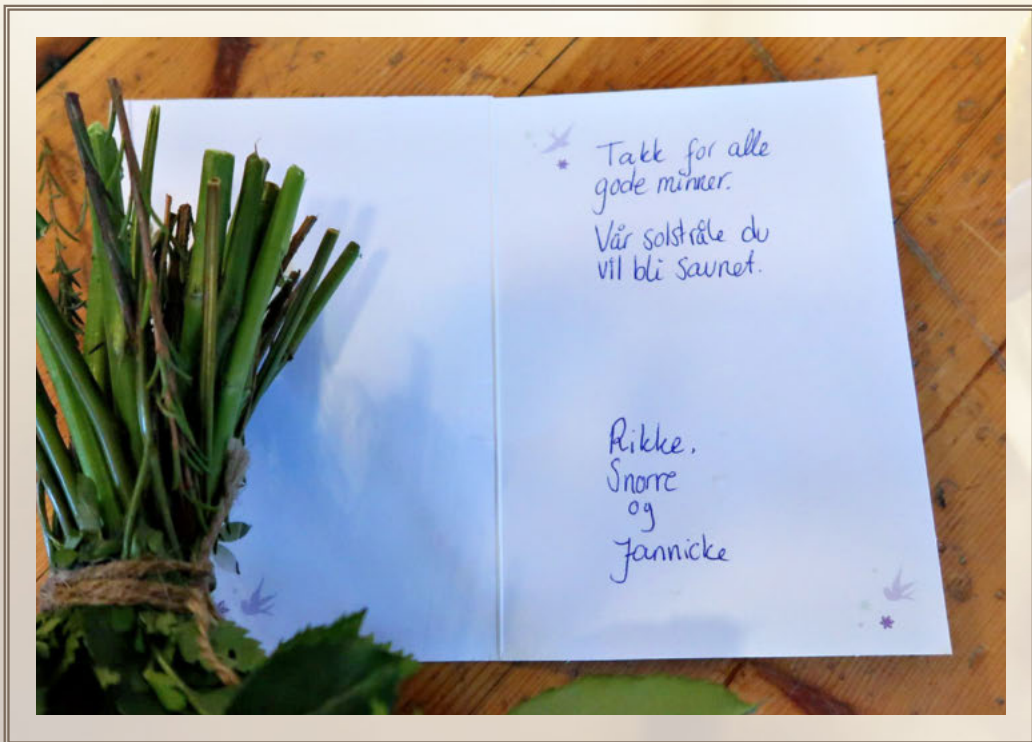 Takk for alle
gode minner.
Vår solstråle du
vil bli savnet.
Rikke,
Snorre
og
Jannicke